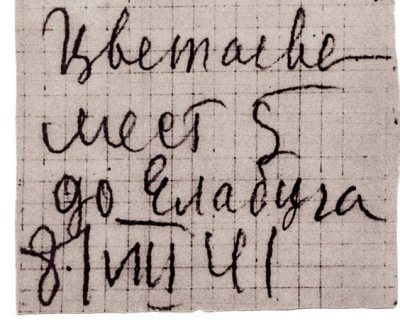 Цветаеве
мест. 5
до Елабуга
8/VIII 41